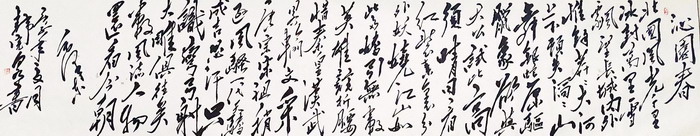 沁園春
北國風光千里
冰封萬里雪
飄望長城內外
惟餘莽莽大河
上下頓失滔滔山
舞銀蛇原驅
臘象欲與
天公試比高
須晴日看
紅裝素裹分外
妖嬈江山如
此多嬌引無數
英雄競折腰
惜秦皇漢武
略輸文采
唐宗宋祖稍
遜風騷一代天驕
成吉思汗只
識彎弓射
大雕俱往矣
數風流人物
還看今朝